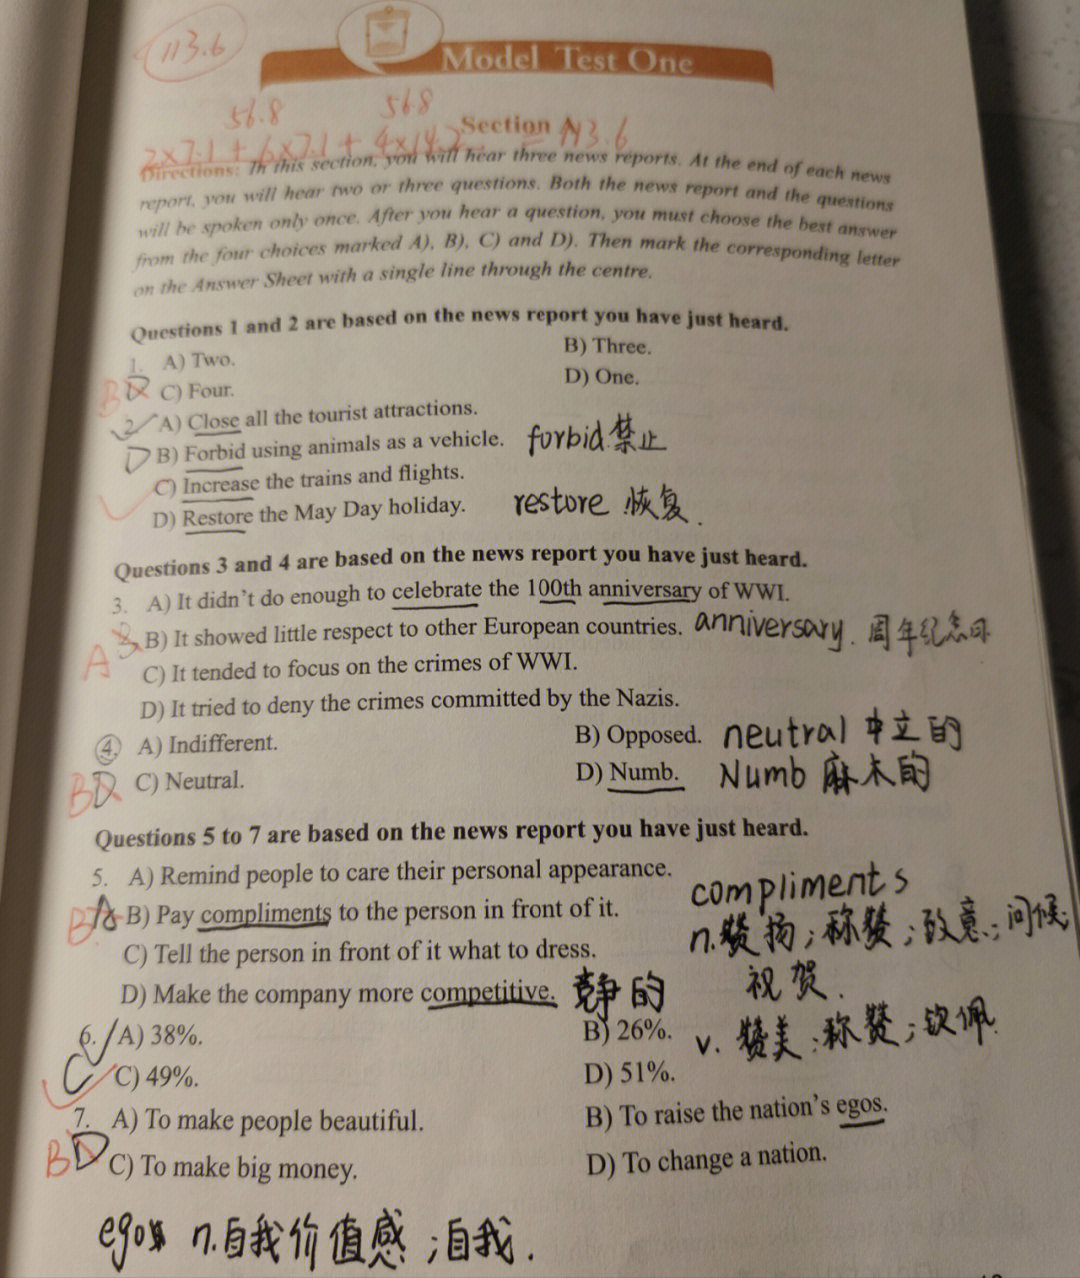 113.6
Model Test One
56.8 56.8
Section A
2×7.1+6×7.1+4×14.2 = 113.6
Directions: In this section, you will hear three news reports. At the end of each news
report, you will hear two or three questions. Both the news report and the questions
will be spoken only once. After you hear a question, you must choose the best answer
from the four choices marked A), B), C) and D). Then mark the corresponding letter
on the Answer Sheet with a single line through the centre.
Questions 1 and 2 are based on the news report you have just heard.
1. A) Two. B) Three.
B D C) Four. D) One.
2. A) Close all the tourist attractions.
D B) Forbid using animals as a vehicle. forbid 禁止
C) Increase the trains and flights.
D) Restore the May Day holiday. restore 恢复.
Questions 3 and 4 are based on the news report you have just heard.
3. A) It didn't do enough to celebrate the 100th anniversary of WWI.
A B B) It showed little respect to other European countries. anniversary. 周年纪念日
C) It tended to focus on the crimes of WWI.
D) It tried to deny the crimes committed by the Nazis.
4. A) Indifferent. B) Opposed. neutral 中立的
B D C) Neutral. D) Numb. Numb 麻木的
Questions 5 to 7 are based on the news report you have just heard.
5. A) Remind people to care their personal appearance. compliments
B B) Pay compliments to the person in front of it. n.赞扬;称赞;致意;问候;
C) Tell the person in front of it what to dress. 祝贺.
D) Make the company more competitive. 竞争的
6. A) 38%. B) 26%. v. 赞美;称赞;钦佩.
C C) 49%. D) 51%.
7. A) To make people beautiful. B) To raise the nation's egos.
B D C) To make big money. D) To change a nation.
egos n.自我价值感;自我.